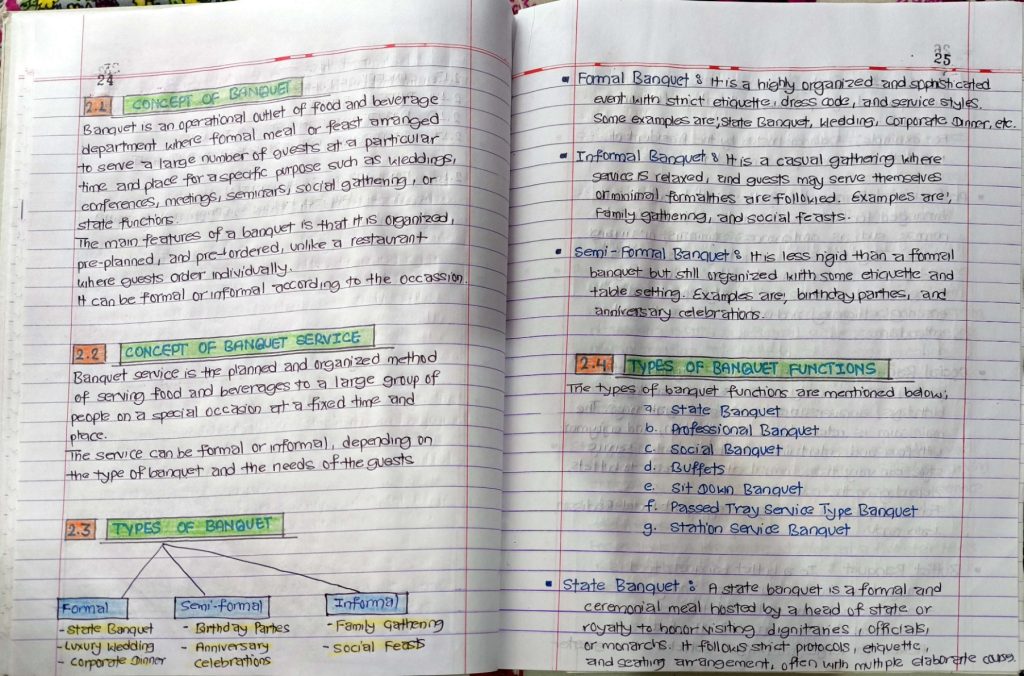 24
2.1 CONCEPT OF BANQUET
Banquet is an operational outlet of food and beverage
department where formal meal or feast arranged
to serve a large number of guests at a particular
time and place for a specific purpose such as weddings,
conferences, meetings, seminars, social gathering, or
state functions.
The main features of a banquet is that it is organized,
pre-planned, and pre-ordered, unlike a restaurant
where guests order individually.
It can be formal or informal according to the occassion.
2.2 CONCEPT OF BANQUET SERVICE
Banquet service is the planned and organized method
of serving food and beverages to a large group of
people on a special occasion at a fixed time and
place.
The service can be formal or informal, depending on
the type of banquet and the needs of the guests
2.3 TYPES OF BANQUET
Formal Semi-formal Informal
- State Banquet - Birthday Parties - Family Gathering
- Luxury Wedding - Anniversary - Social Feasts
- Corporate Dinner celebrations
25
• Formal Banquet : It is a highly organized and sophisticated
event with strict etiquette, dress code, and service styles.
Some examples are; State Banquet, Wedding, Corporate Dinner, etc.
• Informal Banquet : It is a casual gathering where
service is relaxed, and guests may serve themselves
or minimal formalities are followed. Examples are;
Family gathering, and social feasts.
• Semi-Formal Banquet : It is less rigid than a formal
banquet but still organized with some etiquette and
table setting. Examples are; birthday parties, and
anniversary celebrations.
2.4 TYPES OF BANQUET FUNCTIONS
The types of banquet functions are mentioned below;
a. State Banquet
b. Professional Banquet
c. Social Banquet
d. Buffets
e. Sit Down Banquet
f. Passed Tray Service Type Banquet
g. Station Service Banquet
• State Banquet : A state banquet is a formal and
ceremonial meal hosted by a head of state or
royalty to honor visiting dignitaries, officials,
or monarchs. It follows strict protocols, etiquette,
and seating arrangement, often with multiple elaborate courses.